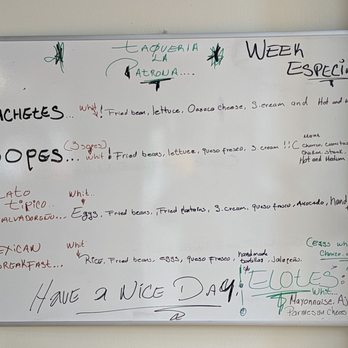 TAQUERIA
LA
PATRONA....
WEEK
ESPECI
ACHETES... Whit..! Fried bean, lettuce, Oaxaca cheese, S.cream and Hot and
OPES... (3 sopes) whit! Fried beans, lettuce, queso fresco, S cream !!
Hot and Medium
LATO
TIPICO..
ALVADOREÑO... Whit... Eggs, Fried beans, Fried plantains, S.cream, queso fresco, Avocado,
EXICAN
BREAKFAST... Whit Rice, Fried beans, eggs, queso fresco, handmade tortillas Jalapeño.
HAVE A NICE DAY,
ELOTES:
Whit...
Mayonnaise,
Parmesan Cheese